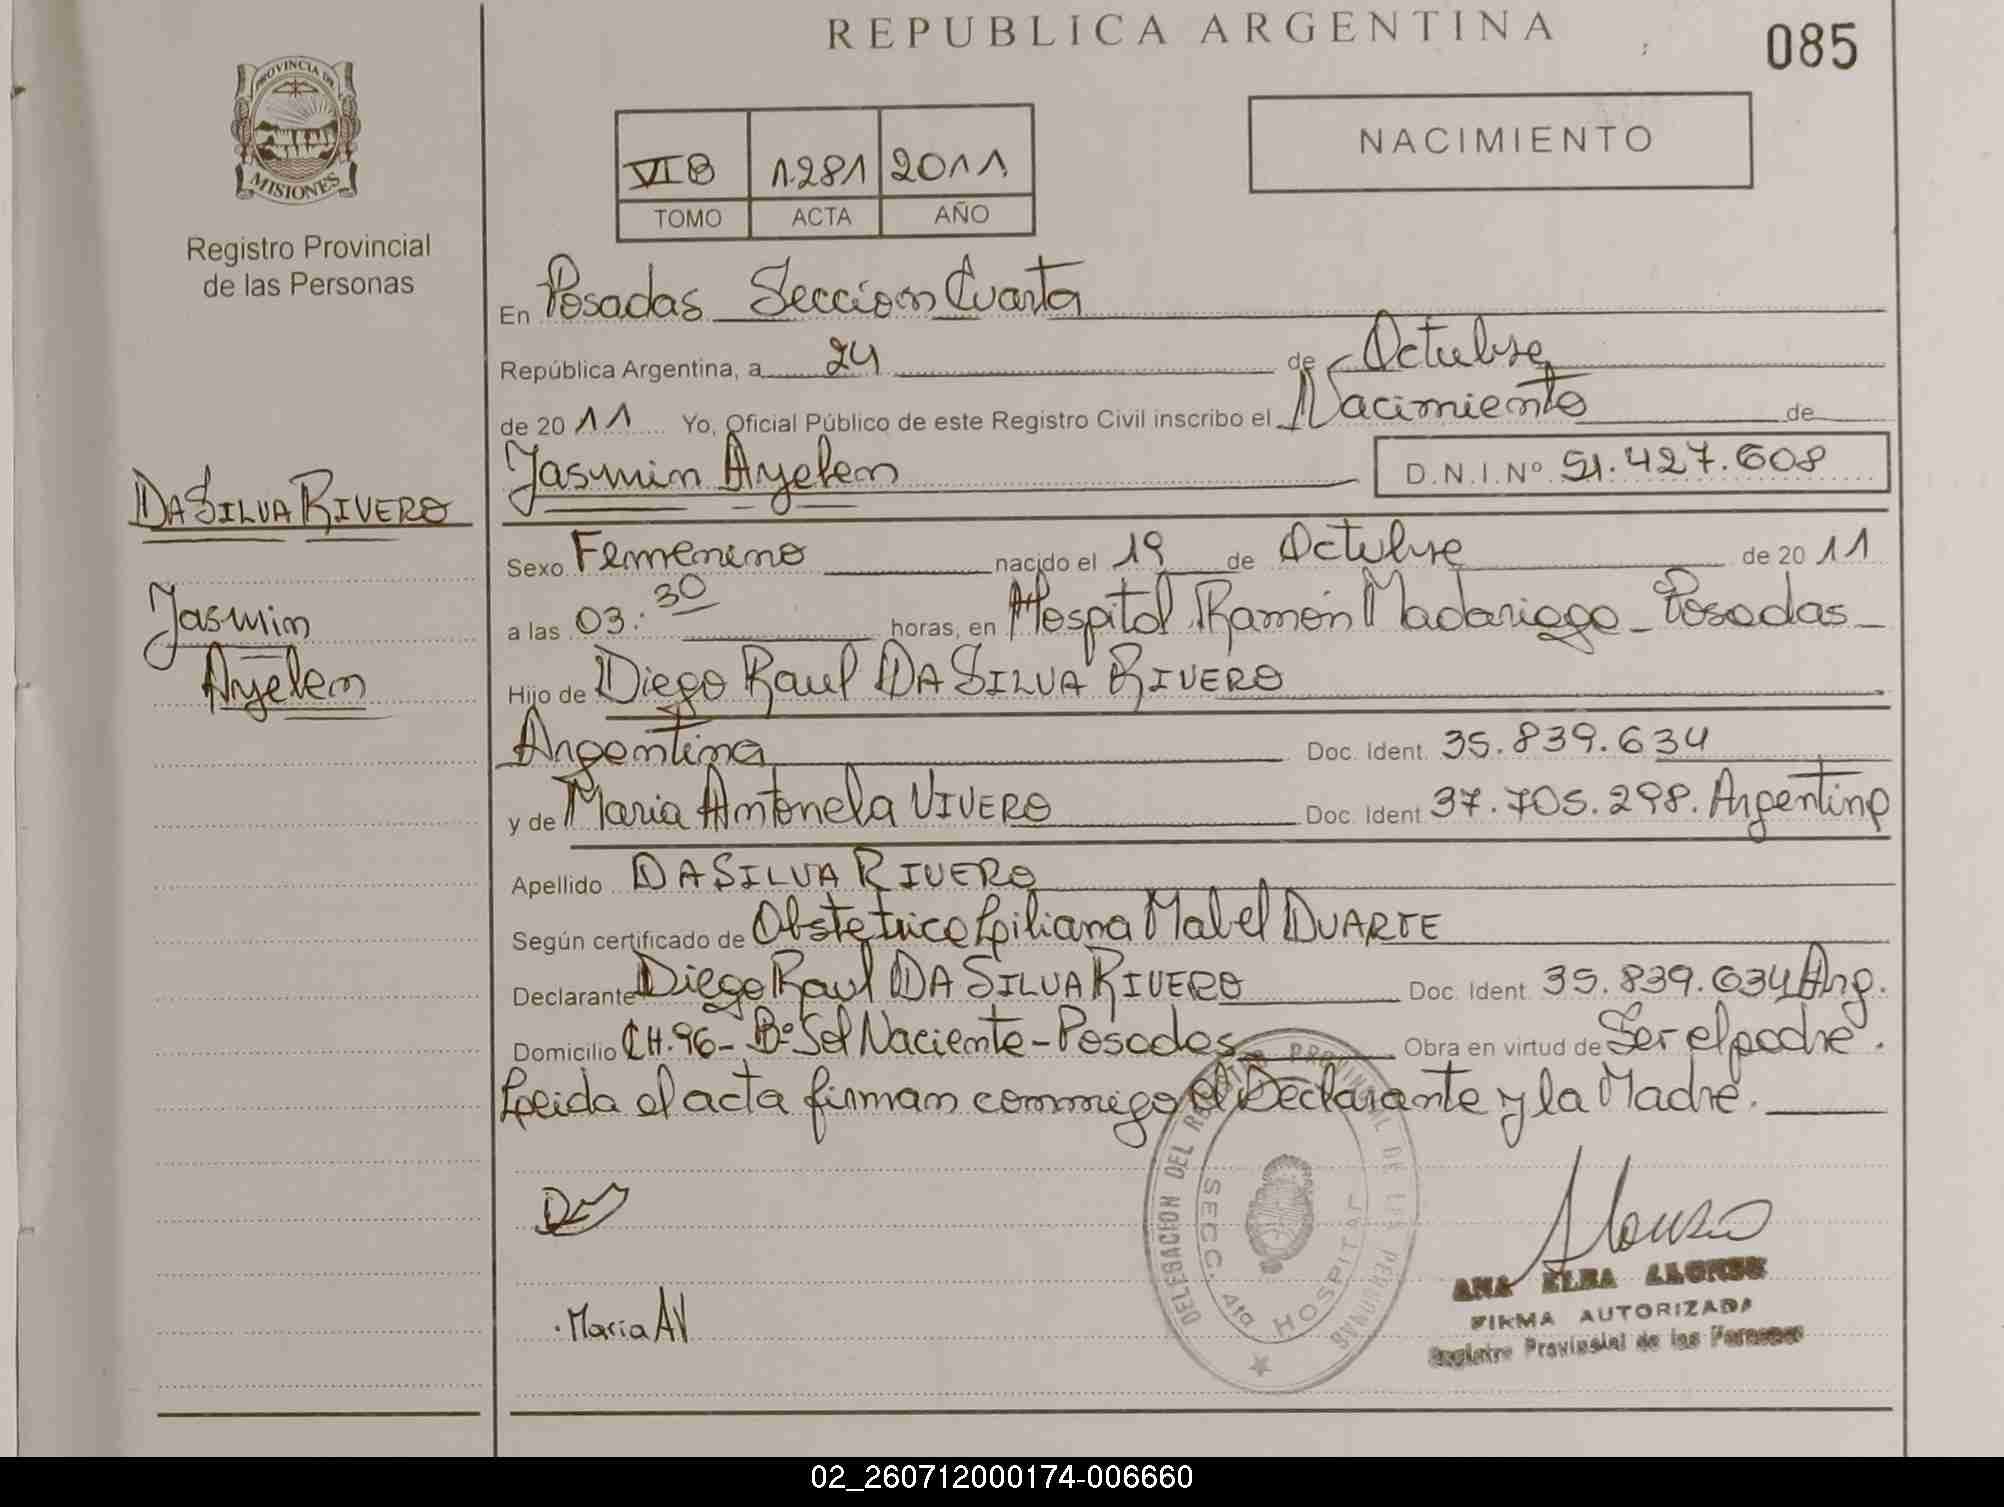 REPUBLICA ARGENTINA
085
PROVINCIA DE
MISIONES
Registro Provincial
de las Personas
VI B 1281 2011
TOMO ACTA AÑO
NACIMIENTO
En Posadas Seccion Cuarta
República Argentina, a 24 de Octubre
de 2011 Yo, Oficial Público de este Registro Civil inscribo el Nacimiento de
Jasmin Ayelen D.N.I.Nº 51.427.608
DA SILVA RIVERO
Jasmin
Ayelen
Sexo Femenino nacido el 19 de Octubre de 2011
a las 03:30 horas, en Hospital Ramón Madariaga - Posadas -
Hijo de Diego Raul DA SILVA RIVERO
Argentina Doc. Ident. 35.839.634
y de Maria Antonela VIVERO Doc. Ident 37.705.298. Argentina
Apellido DA SILVA RIVERO
Según certificado de Obstetrica Liliana Mabel DUARTE
Declarante Diego Raul DA SILVA RIVERO Doc. Ident. 35.839.634 Arg.
Domicilio CH.96- Bº Sol Naciente - Posadas Obra en virtud de Ser el padre.
Leida el acta firman conmigo el Declarante y la Madre.
DELEGACION DEL REGISTRO PROVINCIAL DE LAS PERSONAS
SECC. 4ta HOSPITAL
Alonso
ANA ELBA ALONSO
FIRMA AUTORIZADA
Registro Provincial de las Personas
. Maria AV
02_260712000174-006660